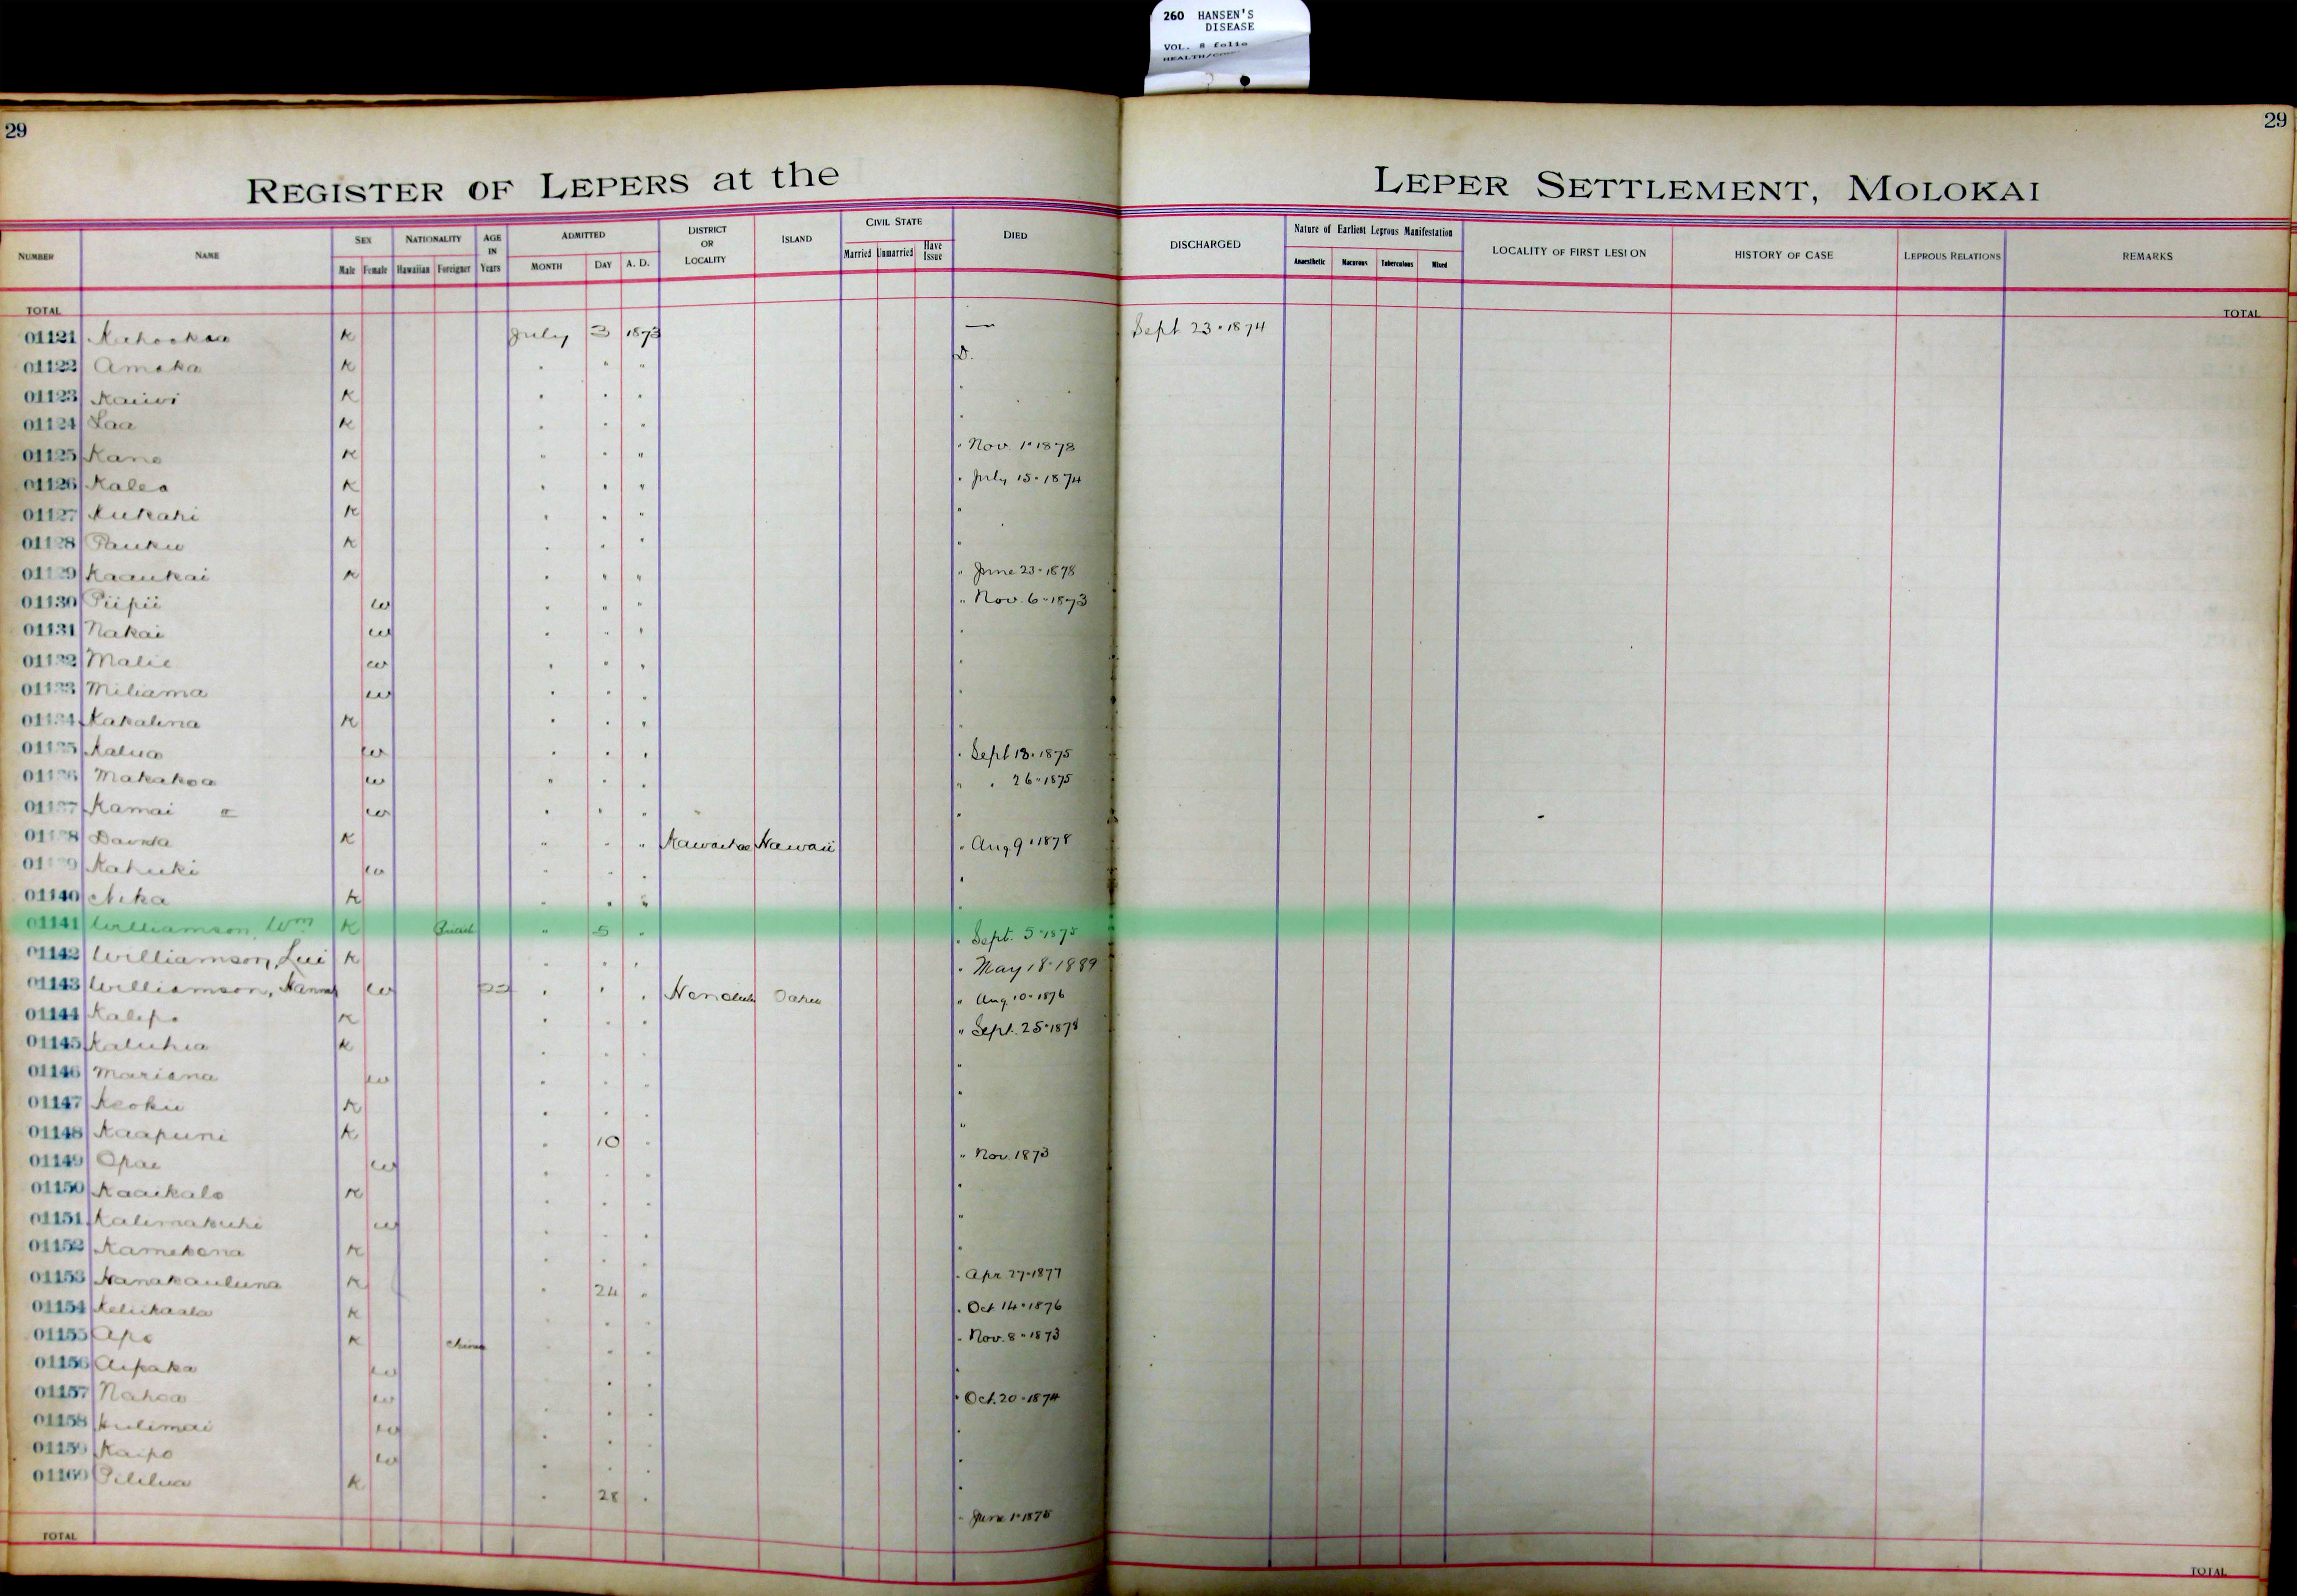 260 HANSEN'S
DISEASE
VOL. 8 folio
29
29
REGISTER OF LEPERS at the LEPER SETTLEMENT, MOLOKAI
NUMBER NAME SEX NATIONALITY AGE IN Years ADMITTED DISTRICT OR LOCALITY ISLAND CIVIL STATE DIED DISCHARGED Nature of Earliest Leprous Manifestation LOCALITY OF FIRST LESION HISTORY OF CASE LEPROUS RELATIONS REMARKS
Male Female Hawaiian Foreigner MONTH DAY A. D. Married Unmarried Have Issue Anaesthetic Macurous Tuberculous Mixed
TOTAL TOTAL
01121 K July 3 1873 — Sept 23 · 1874
01122 Amaka K " " " D.
01123 Kaiwi K " " " "
01124 Laa K " " " "
01125 Kane K " " " " Nov. 1 · 1878
01126 Kalea K " " " " July 15 · 1874
01127 Kukahi K " " " "
01128 Pauku K " " " "
01129 Kaaukai K " " " " June 23 · 1878
01130 Piipii w " " " " Nov. 6 · 1873
01131 Nakai w " " " "
01132 Malie w " " " "
01133 Miliama w " " " "
01134 Kakalina K " " " "
01135 Kalua w " " " " Sept 18 · 1875
01136 Makakoa w " " " " " 26 · 1875
01137 Kamai w " " " "
01138 K " " " Kawaihae Hawaii " Aug 9 · 1878
01139 Kahuki w " " " "
01140 Nika K " " " "
01141 Williamson, Wm K British " 5 " " Sept. 5 · 1875
01142 Williamson, Lui K " " " " May 18 · 1889
01143 Williamson, Hannah w " " " Honolulu Oahu " Aug. 10 · 1876
01144 Kalepo K " " " " Sept. 25 · 1878
01145 Kaluhia K " " " "
01146 Mariana w " " " "
01147 Keoku K " " " "
01148 Kaapuni K " 10 " "
01149 Opae w " " " " Nov. 1873
01150 Kaaikalo K " " " "
01151 Kalimakuhi w " " " "
01152 Kamekona K " " " "
01153 Nanakauluna K " 24 " " Apr 27 · 1877
01154 Keliikaala K " " " " Oct 14 · 1876
01155 Apo K China " " " Nov. 8 · 1873
01156 Aipaka w " " "
01157 Nahoa w " " " " Oct. 20 · 1874
01158 Hulimai w " " " "
01159 Kaipo w " " " "
01160 Pililua K " 28 " "
" June 1 · 1875
TOTAL TOTAL